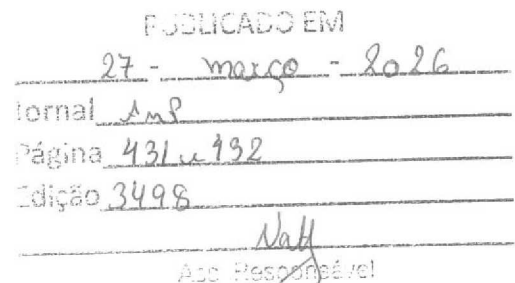 PUBLICADO EM
27 - março - 2026
Jornal AMP
Página 431 e 432
Edição 3498
Ass. Responsável